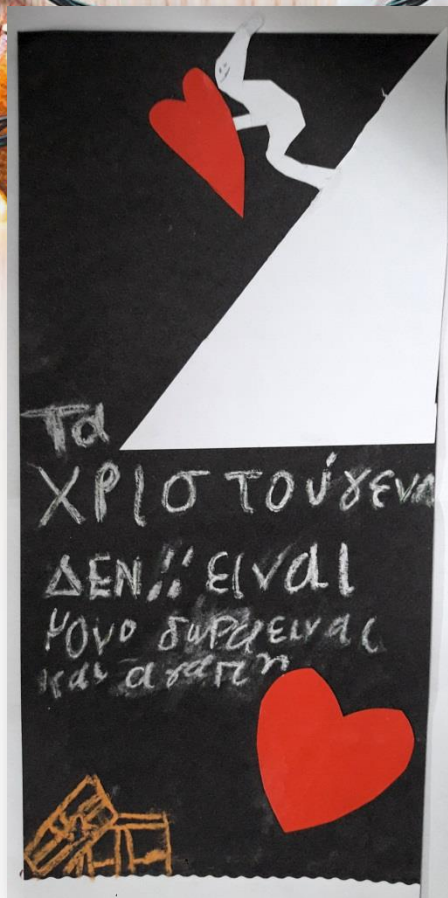 Τα
ΧΡΙσΤούγενα
ΔΕΝ!! είναι
μονο δωρα ειναι
και αγαπη